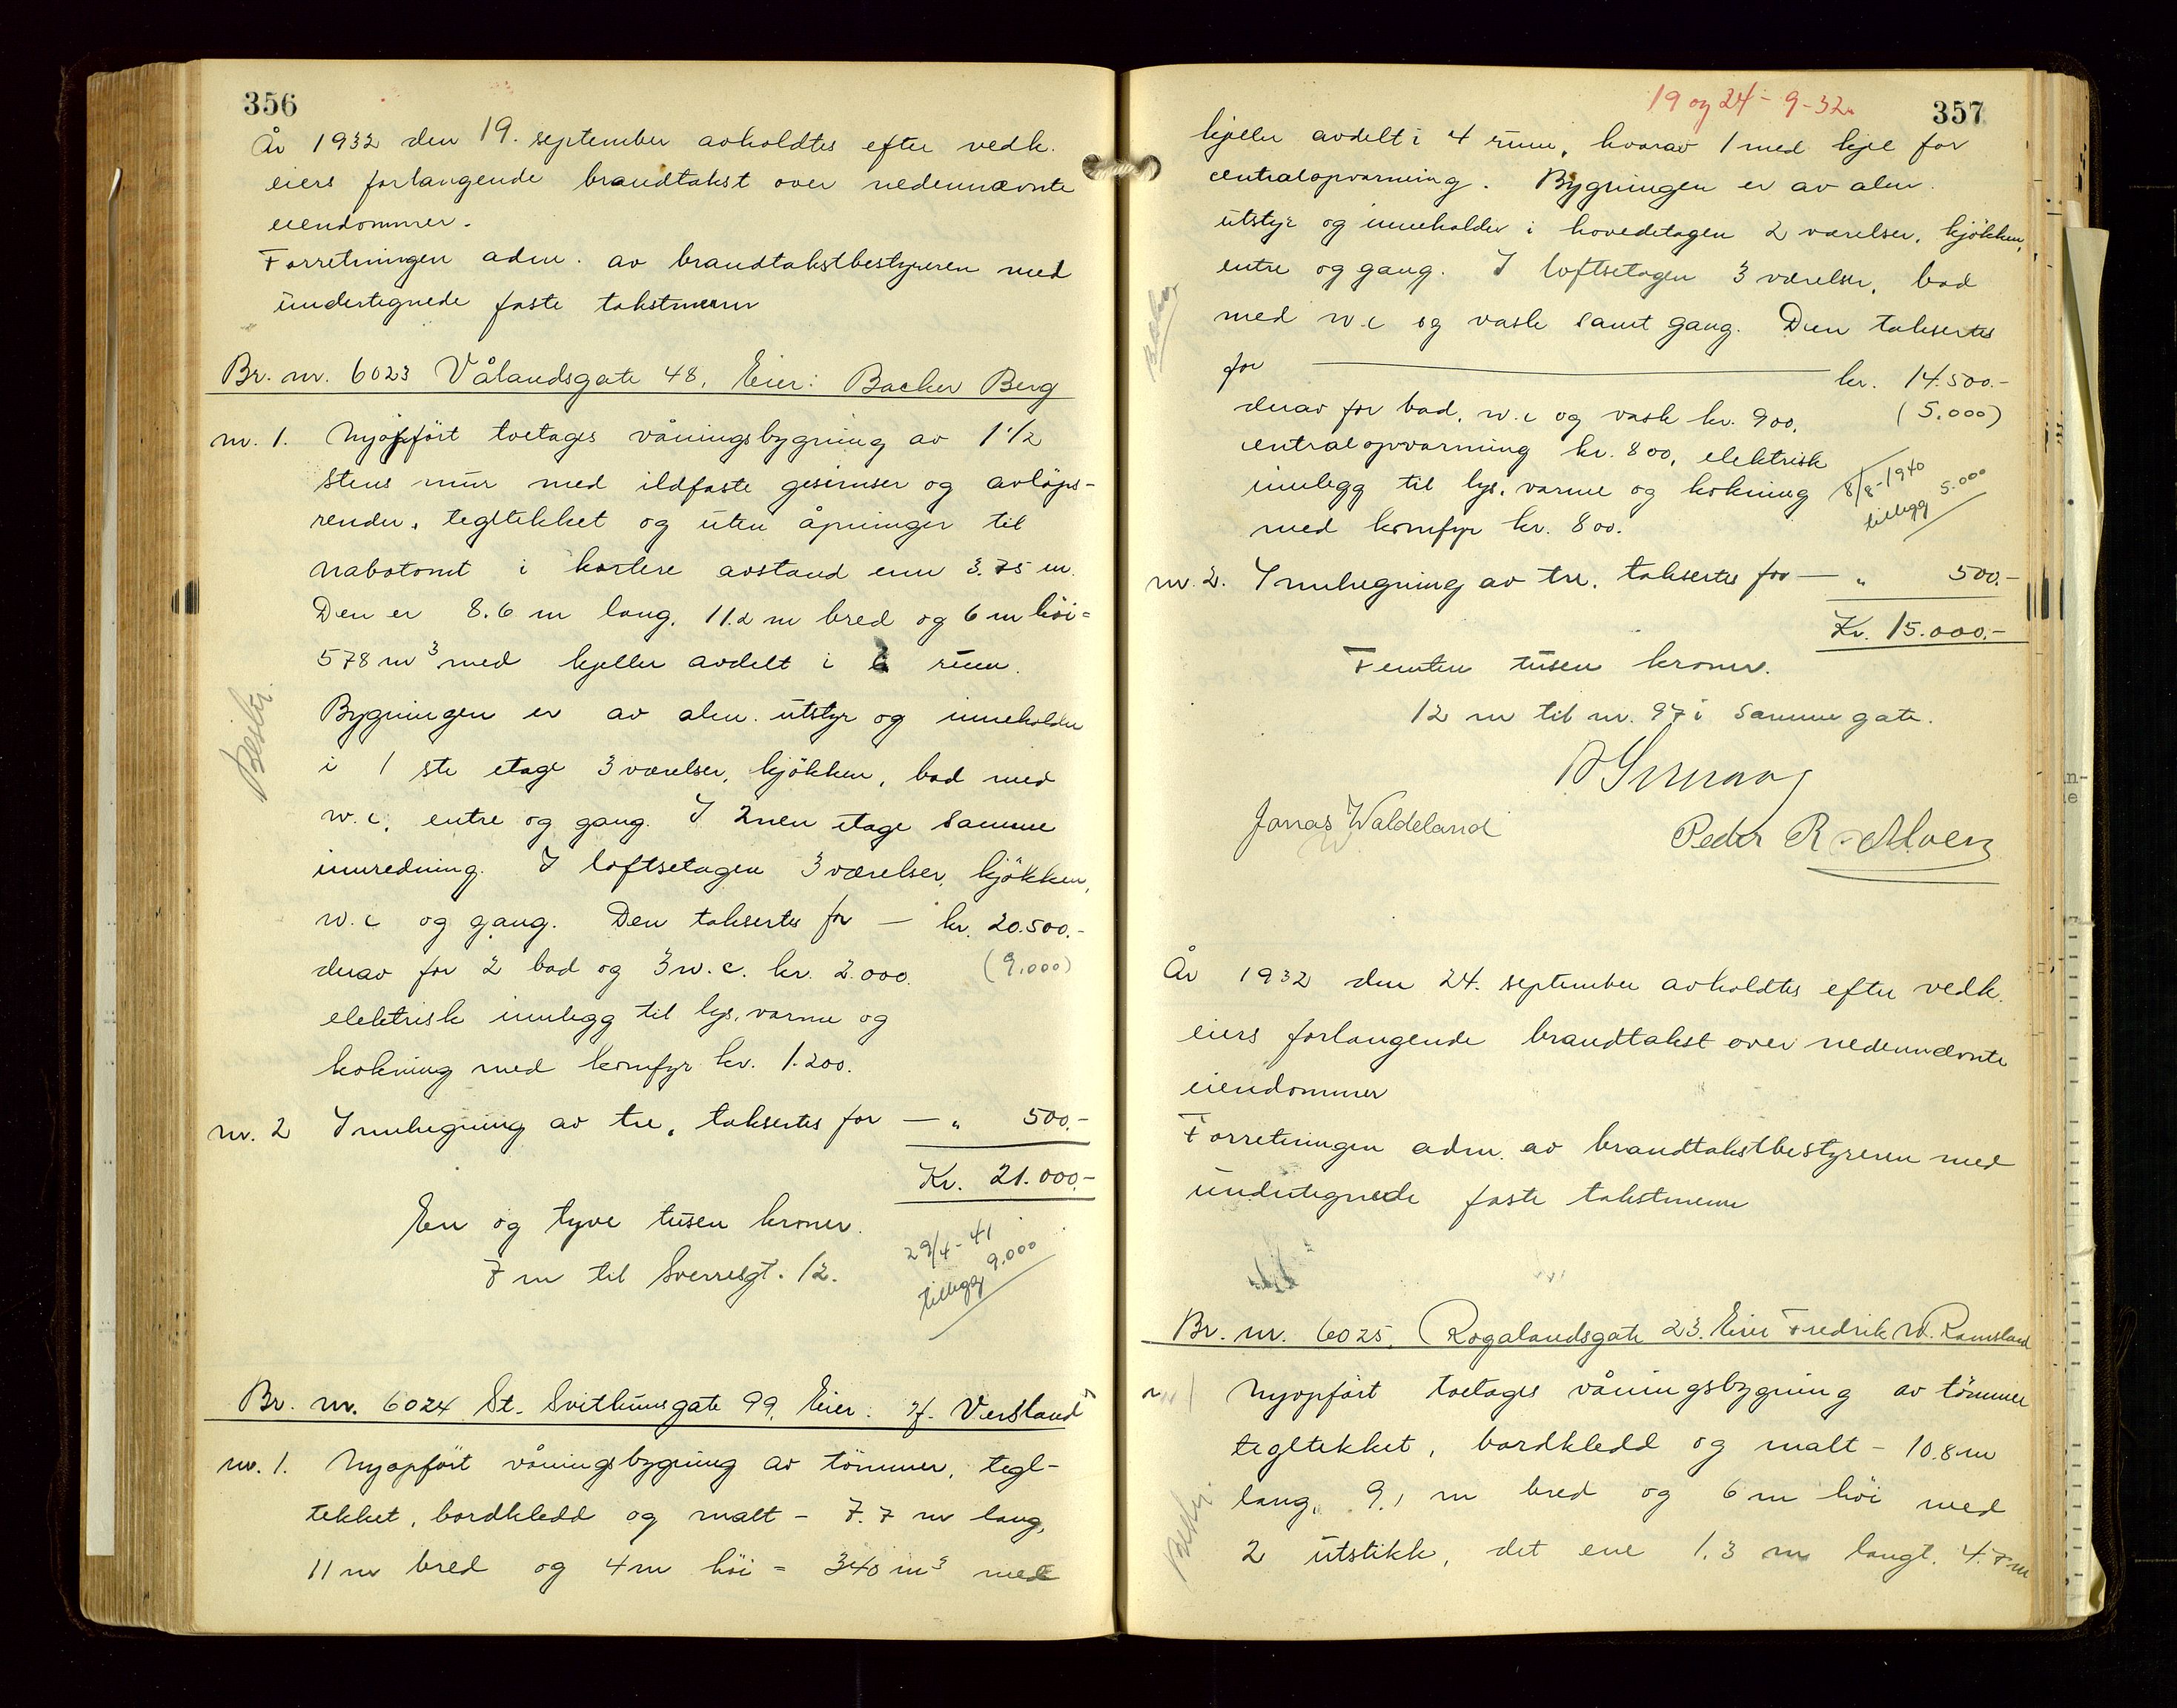 356
År 1932 den 19. september avholdtes efter vedk.
eiers forlangende brandtakst over nedennævnte
eiendommer.
Forretningen adm. av brandtakstbestyreren med
undertegnede faste takstmenn
Br. nr. 6023 Vålandsgate 48, Eier: Backer Berg
nr. 1. Nyopført toetages våningsbygning av 1 1/2
stens mur med ildfaste gesimser og avløps-
render, tegltekket og uten åpninger til
nabotomt i kortere avstand enn 3.75 m.
Den er 8.6 m lang, 11.2 m bred og 6 m höi =
578 m³ med kjeller avdelt i 6 rum.
Bygningen er av alm. utstyr og inneholder
i 1 ste etage 3 værelser, kjøkken, bad med
w.c, entre og gang. I 2nen etage samme
innredning. I loftsetagen 3 værelser, kjøkken,
w.c og gang. Den taksertes for — kr. 20.500.-
derav for 2 bad og 3 w.c. kr. 2.000. (9.000)
elektrisk innlegg til lys, varme og
kokning med komfyr kr. 1.200.
nr. 2 Innhegning av tre, taksertes for — " 500.-
Kr. 21.000.-
En og tyve tusen kroner.
7 m til Sverresgt. 12.
29/4-41
tillegg 9.000
Br. nr. 6024 St. Svithunsgate 99, Eier: H. Versland
nr. 1. Nyopført våningsbygning av tömmer, tegl-
tekket, bordkledd og malt - 7.7 m lang,
11 m bred og 4 m höi = 340 m³ med
19 og 24-9-32.
357
kjeller avdelt i 4 rum, hvorav 1 med kjel for
centralopvarming. Bygningen er av alm.
utstyr og inneholder i hovedetagen 2 værelser, kjökken,
entre og gang. I loftsetagen 3 værelser, bad
med w.c og vask samt gang. Den taksertes
for — kr. 14.500.-
derav for bad, w.c og vask kr. 900, (5.000)
centralopvarming kr. 800, elektrisk
innlegg til lys, varme og kokning
med komfyr kr. 800.
8/8-1940
tillegg 5.000
nr. 2. Innhegning av tre, taksertes for — " 500.-
Kr. 15.000.-
Femten tusen kroner.
12 m til nr. 97 i samme gate.
Jonas Waldeland
Peder R. Moen
År 1932 den 24. september avholdtes efter vedk.
eiers forlangende brandtakst over nedennævnte
eiendommer
Forretningen adm. av brandtakstbestyreren med
undertegnede faste takstmenn
Br. nr. 6025, Rogalandsgate 23. Eier Fredrik W. Ramsland
nr 1 Nyopført toetages våningsbygning av tömmer
tegltekket, bordkledd og malt - 10.8 m
lang, 9.1 m bred og 6 m höi med
2 utstikk, det ene 1.3 m langt, 4.7 m